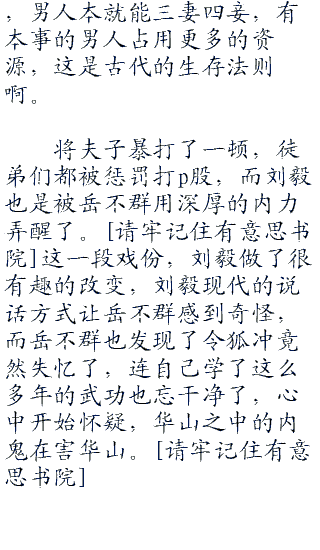 ，男人本就能三妻四妾，有
本事的男人占用更多的资
源，这是古代的生存法则
啊。
将夫子暴打了一顿，徒
弟们都被惩罚打p股，而刘毅
也是被岳不群用深厚的内力
弄醒了。[请牢记住有意思书
院]这一段戏份，刘毅做了很
有趣的改变，刘毅现代的说
话方式让岳不群感到奇怪，
而岳不群也发现了令狐冲竟
然失忆了，连自己学了这么
多年的武功也忘干净了，心
中开始怀疑，华山之中的内
鬼在害华山。[请牢记住有意
思书院]